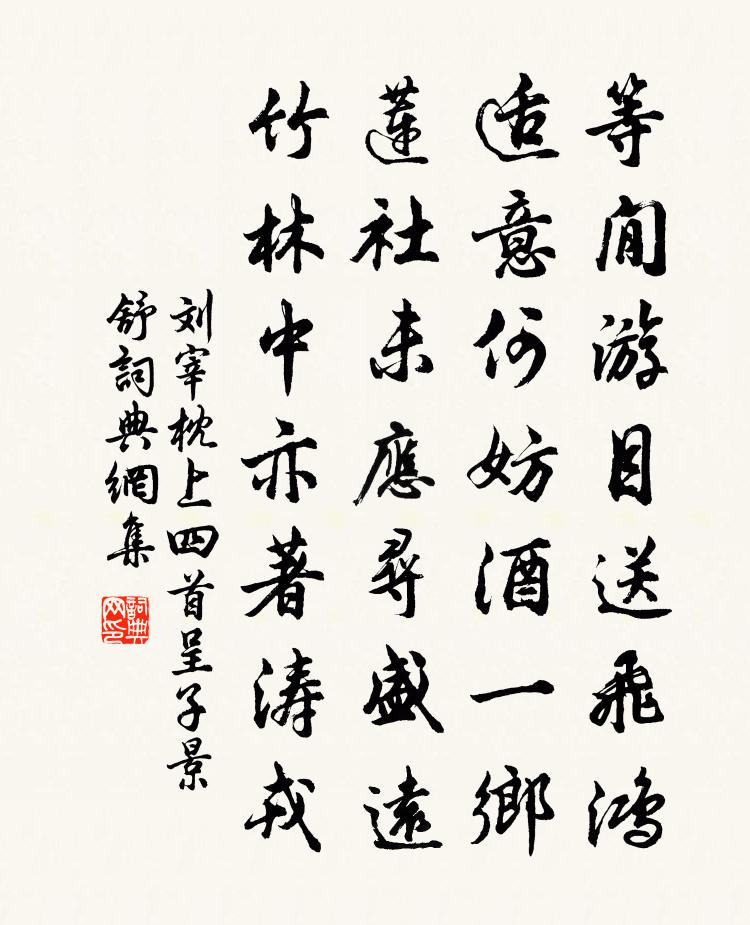 等閒游目送飛鴻
适意何妨酒一鄉
蓮社未應尋盛遠
竹林中亦著濤戎
刘宰枕上四首呈子景
舒詞典網集
詞典
网印